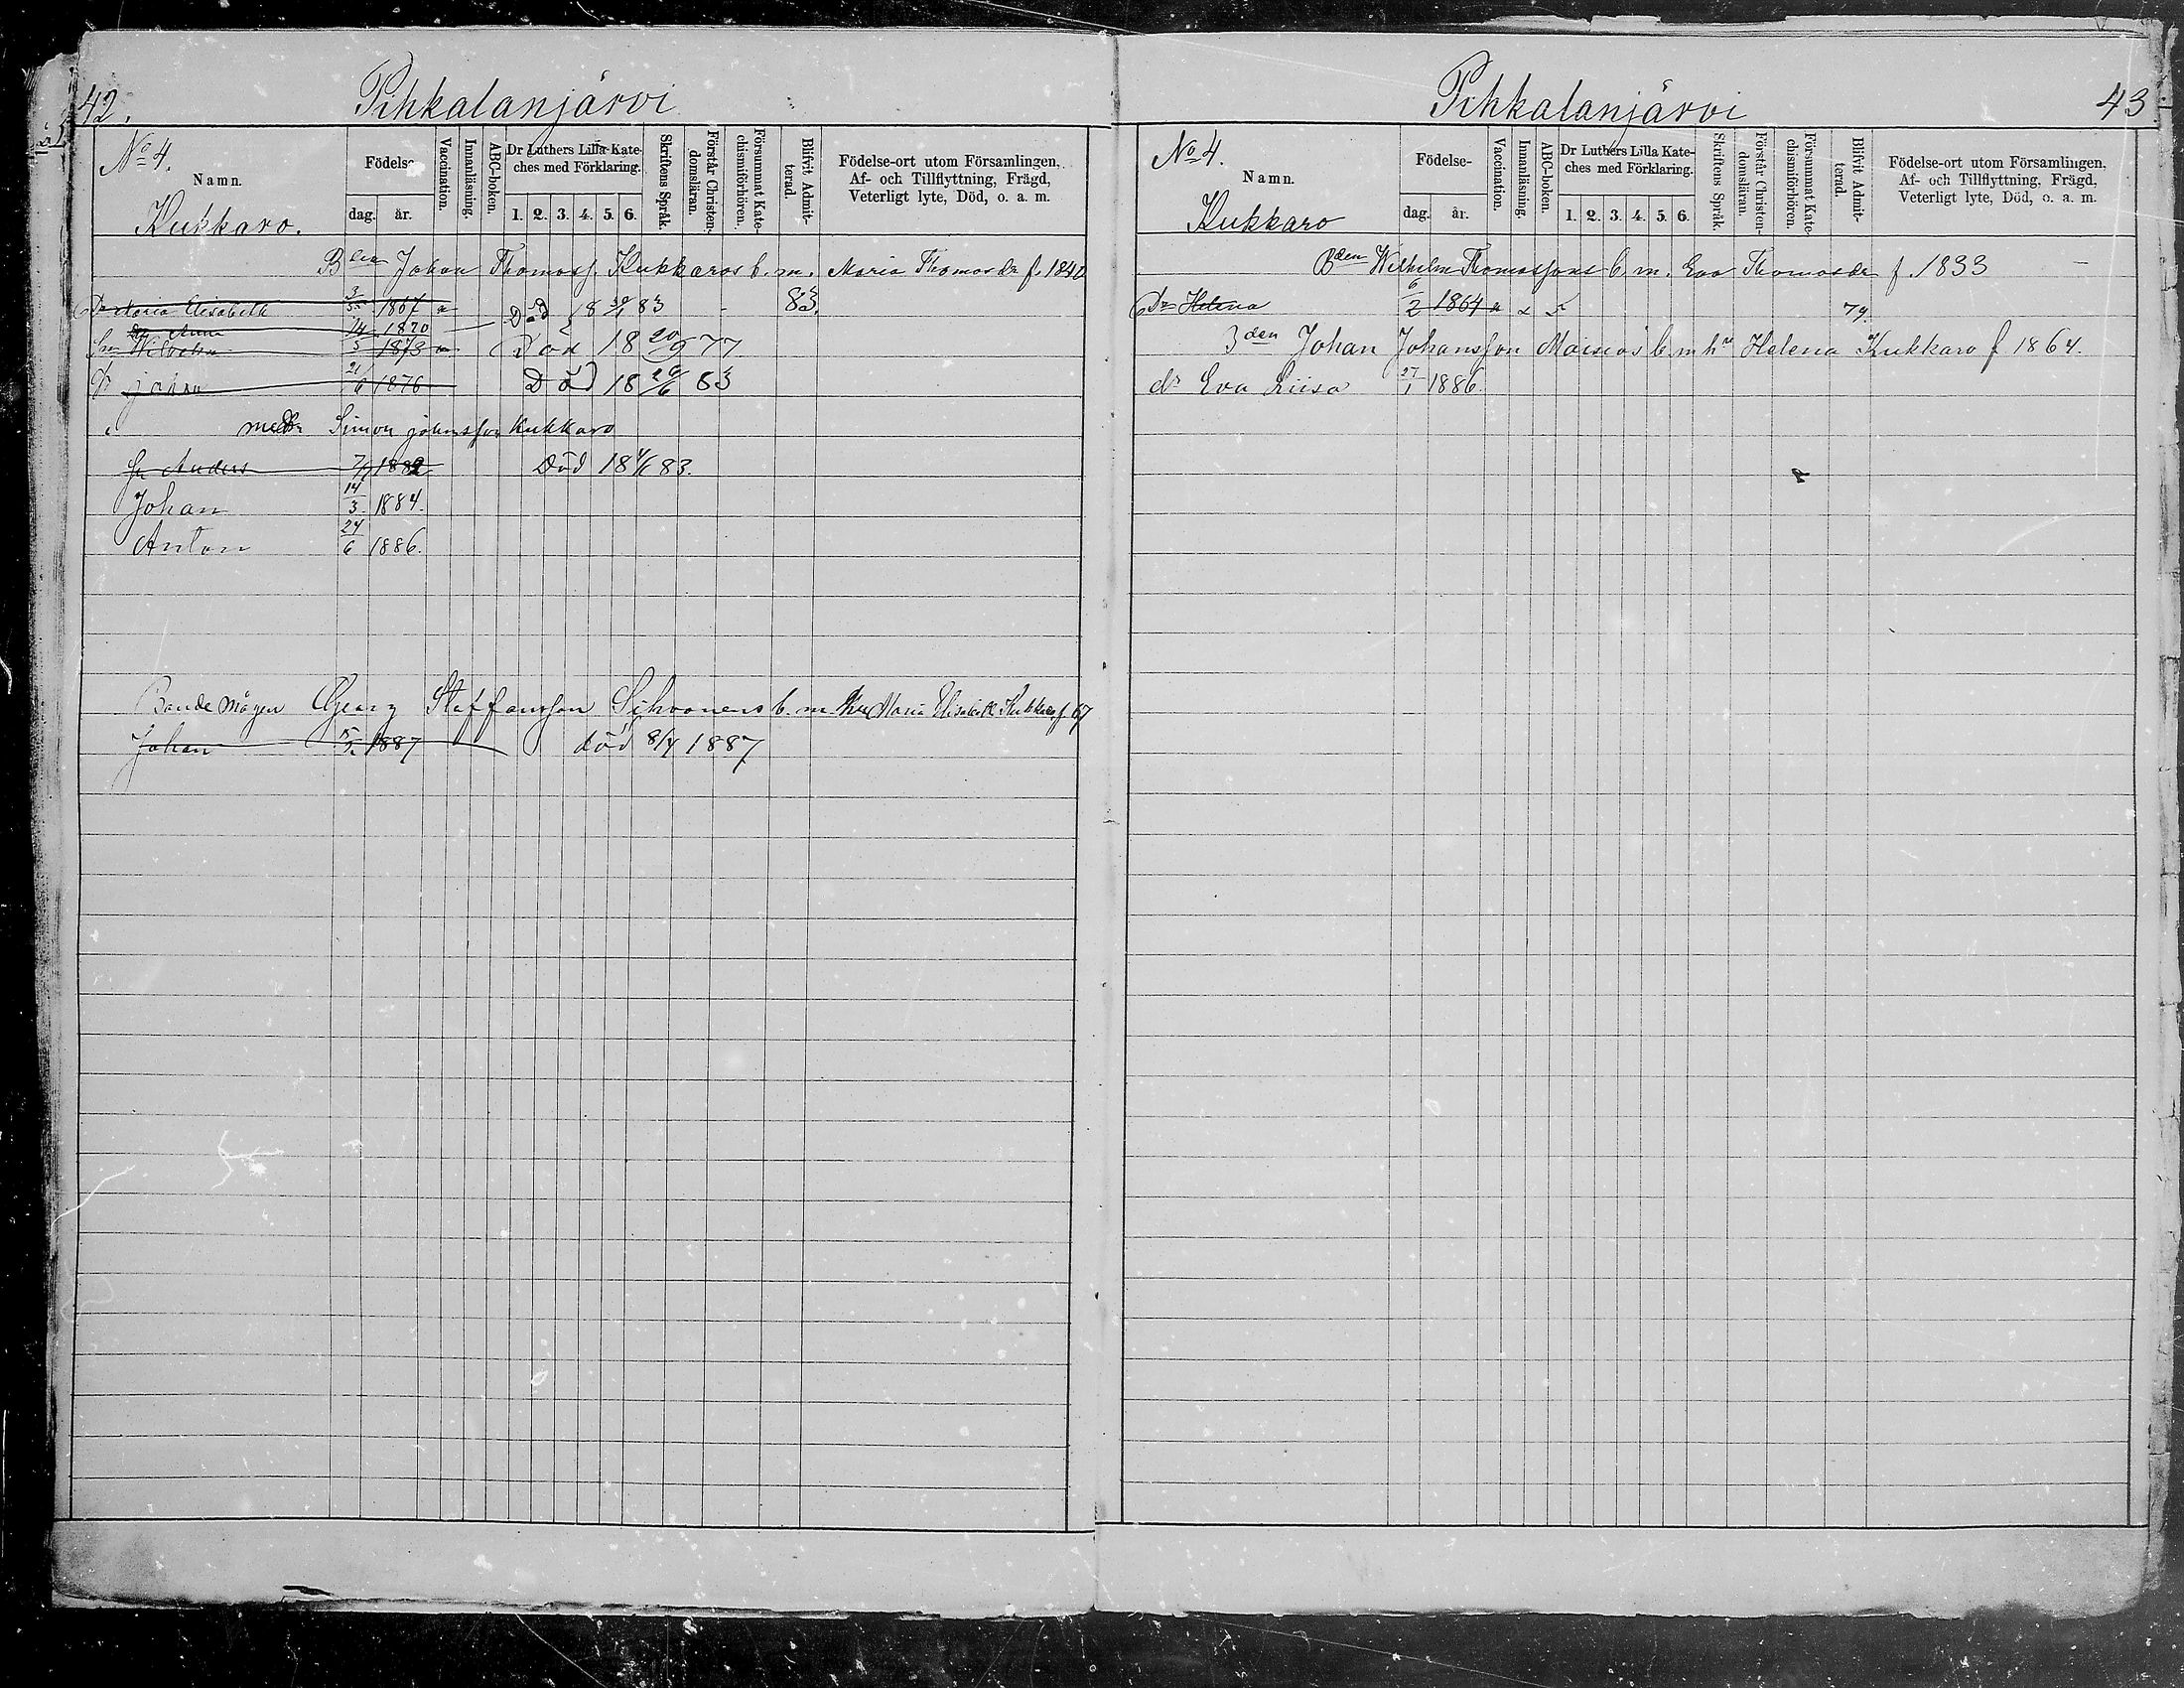 42.
Pihkalanjärvi
No 4.
Namn.
Kukkaro.
Födelse
dag. år.
Vaccination.
Innanläsning.
ABC-boken.
Dr Luthers Lilla Kate-
ches med Förklaring.
1. 2. 3. 4. 5. 6.
Skriftens Språk.
Förstår Christen-
domsläran.
Försummat Kate-
chismiförhören.
Blifvit Admit-
terad.
Födelse-ort utom Församlingen,
Af- och Tillflyttning, Frägd,
Veterligt lyte, Död, o. a. m.
Johan Thomass. Kukkaros b. m. Maria Thomasdr f. 1840
Dr Maria Elisabeth 1867 83.
Dr Anna 1870 Död 18 30/1 83
Sn Wilhelm 1873 Död 18 20/9 77
Dr 21/6 1876 Död 18 26/6 83
Simon Johansson Kukkaro
Sn Anders 1882 Död 18 4/1 83.
Johan 14/3 1884.
Anton 24/6 1886.
Bonde mågen Georg Staffansson Sihvonens b. m. Maria Elisabeth Kukkaro f. 67
Johan 1887 död 8/4 1887
43
Pihkalanjärvi
No 4.
Namn.
Kukkaro
Födelse-
dag. år.
Vaccination.
Innanläsning.
ABC-boken.
Dr Luthers Lilla Kate-
ches med Förklaring.
1. 2. 3. 4. 5. 6.
Skriftens Språk.
Förstår Christen-
domsläran.
Försummat Kate-
chismiförhören.
Blifvit Admit-
terad.
Födelse-ort utom Församlingen,
Af- och Tillflyttning, Frägd,
Veterligt lyte, Död, o. a. m.
Bden Wilhelm Thomassons b. m. Eva Thomasdr f. 1833
Dr Helena 6/2 1864 79.
Bden Johan Johansson Moisios b. m. hu Helena Kukkaro f 1864.
dr Eva Liisa 27/1 1886.